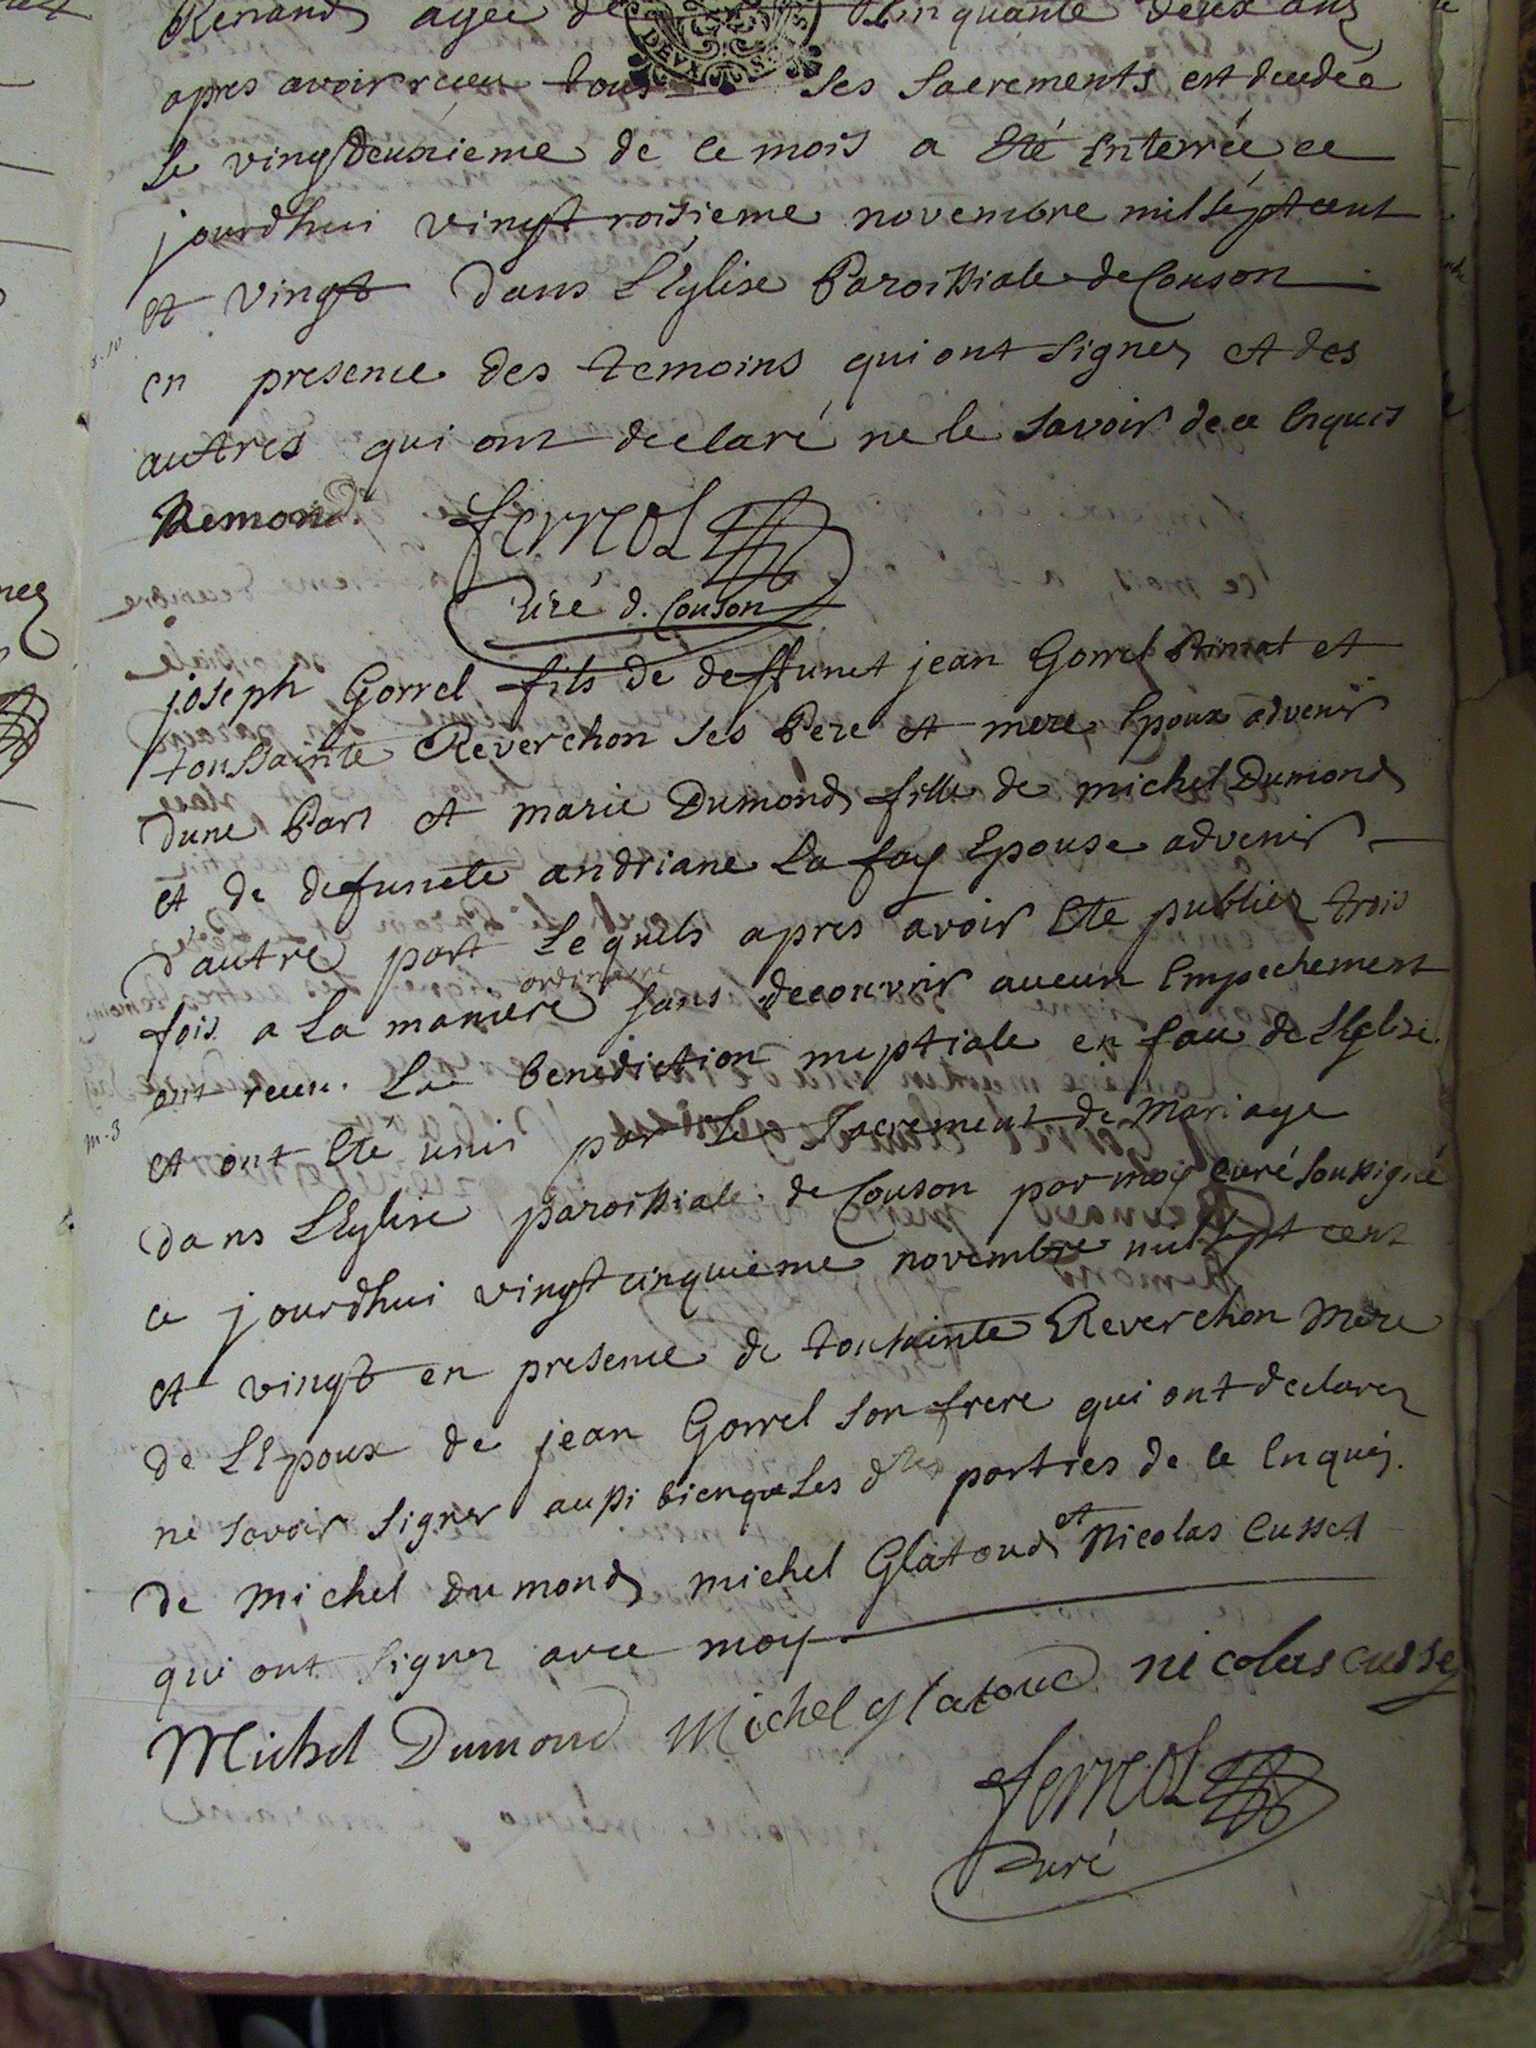 Renand agee de cinquante deux ans
DEVX S
apres avoir recu tous ses sacrements est decedée
le vingtdeuxieme de ce mois a été enterrée ce
jourdhui vingt troisieme novembre mil sept cent
et vingt dans L'Eglise Paroissiale de Couson
en presence des temoins qui ont signez et des
autres qui ont declaré ne le savoir de ce enquis
Remond ferreol
Curé d. Couson
joseph Gorrel fils de deffunct jean Gorrel et
toussainte Reverchon ses Pere et mere Epoux advenir
dune Part et marie Dumond fille de michel Dumond
et de defuncte andriane La fay Epouse advenir
d'autre part Lequels apres avoir Ete publiez trois
fois a La maniere ordinaire sans decouvrir aucun Empechement
ont receu La benediction nuptiale en face de L'Eglise
m. 3
et ont Eté unis par Le Sacrement de Mariage
dans L'Eglise paroissiale de Couson par moy curé soussigné
ce jourdhui vingt cinquieme novembre mil sept cent
et vingt en presence de toussainte Reverchon Mere
de L'Epoux de jean Gorrel son frere qui ont declarez
ne savoir signer aussi bien que Les dtes parties de ce Enquis.
de Michel Dumond michel Glatoud et Nicolas Cusset
qui ont signez avec moy
Michel Dumond Michel glatoud nicolas cusset
ferreol
Curé